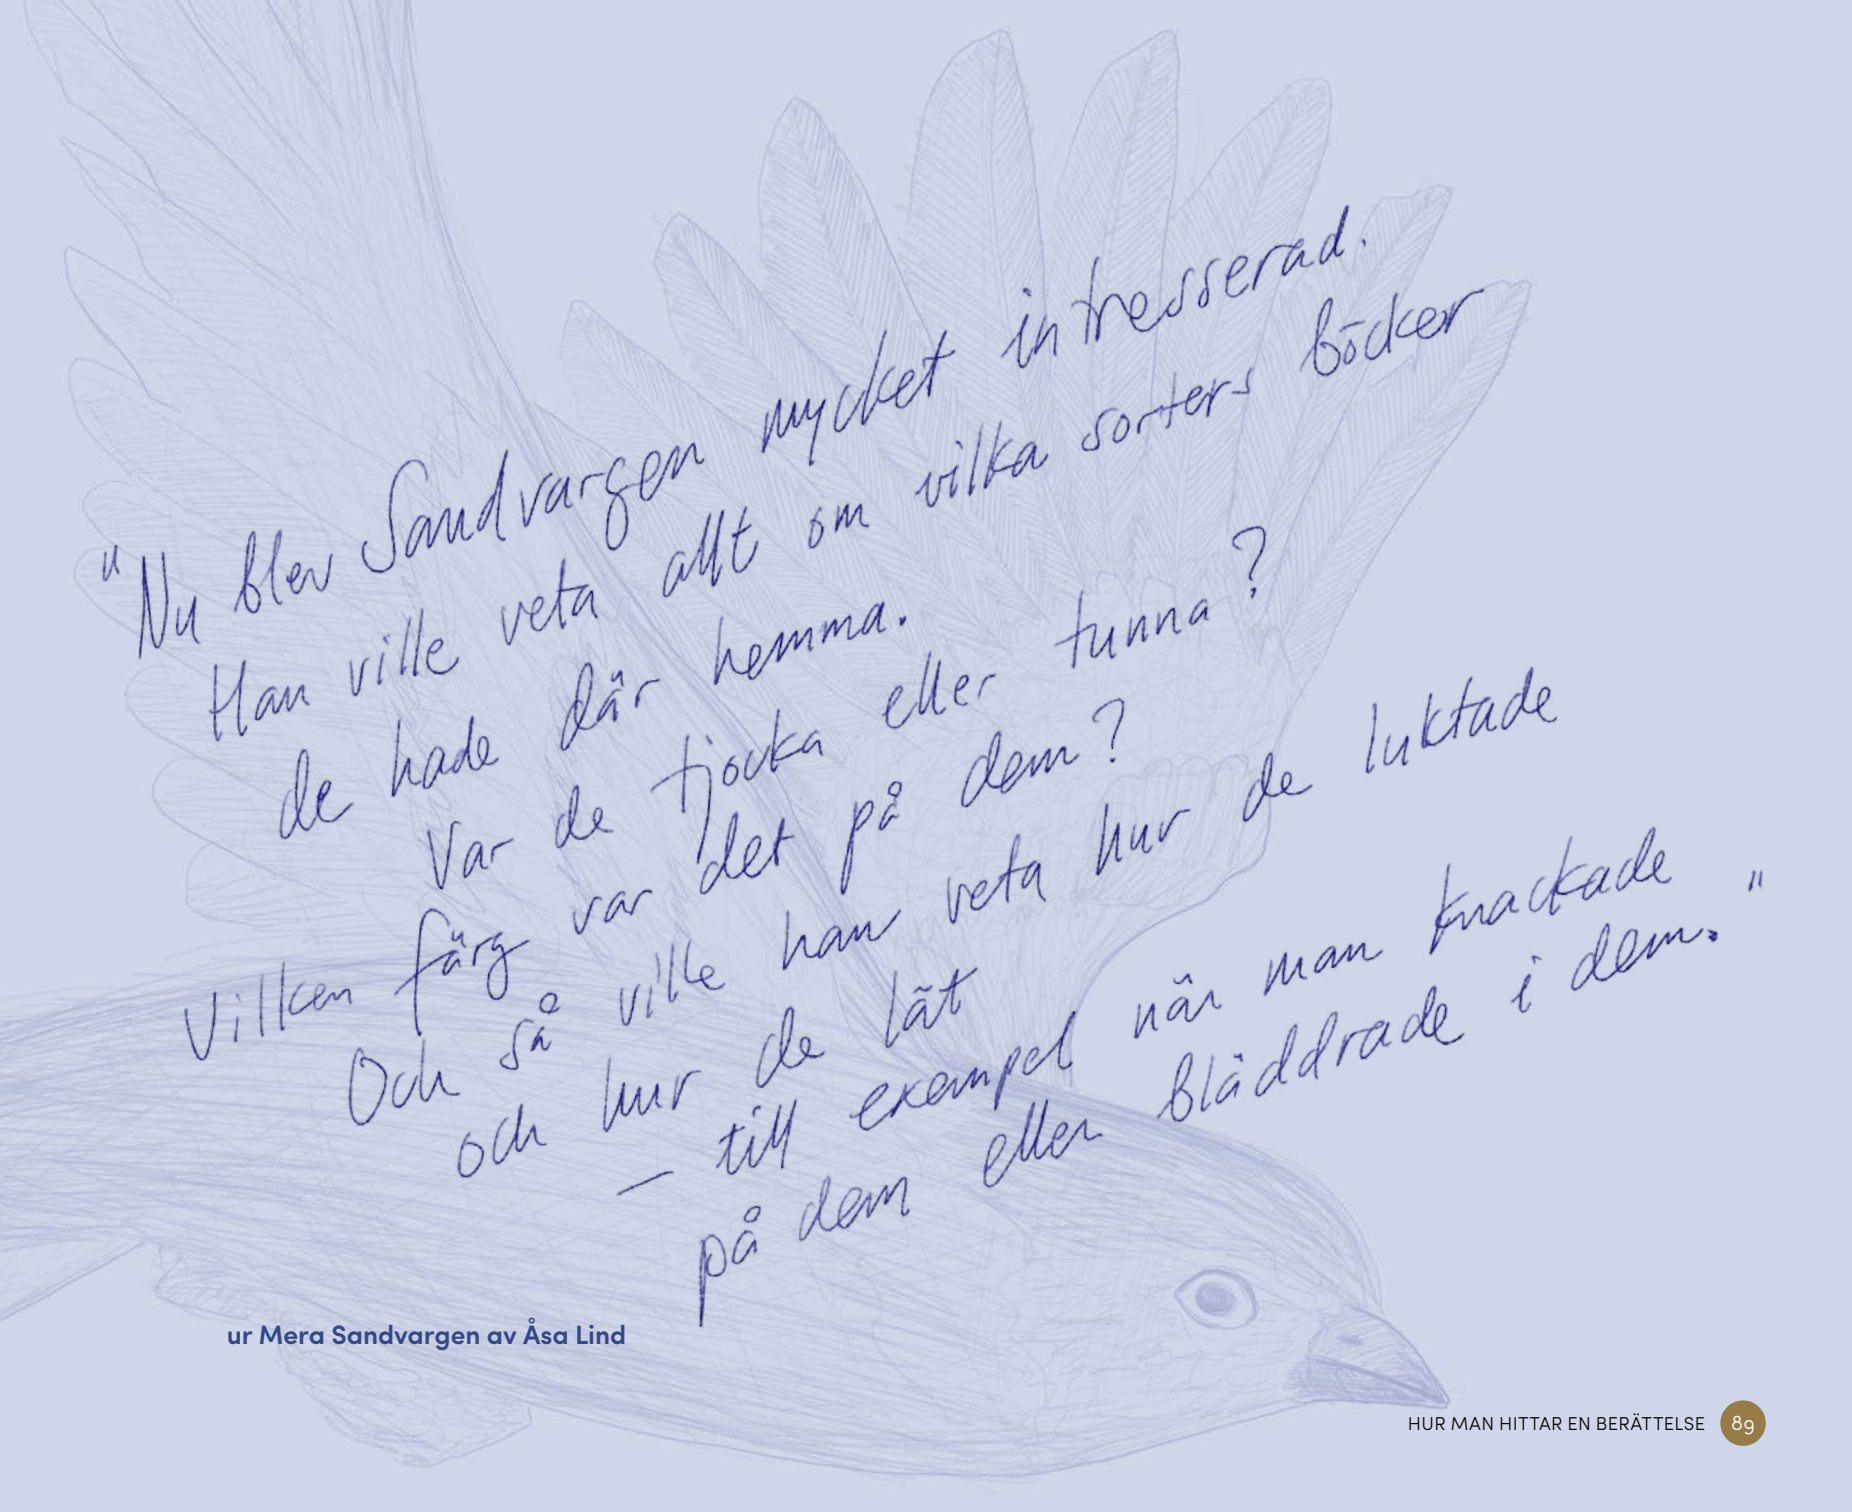 "Nu blev Sandvargen mycket intresserad.
Han ville veta allt om vilka sorters böcker
de hade där hemma.
Var de tjocka eller tunna?
Vilken färg var det på dem?
Och så ville han veta hur de luktade
och hur de lät
– till exempel när man knackade
på dem eller bläddrade i dem."
ur Mera Sandvargen av Åsa Lind
HUR MAN HITTAR EN BERÄTTELSE 89